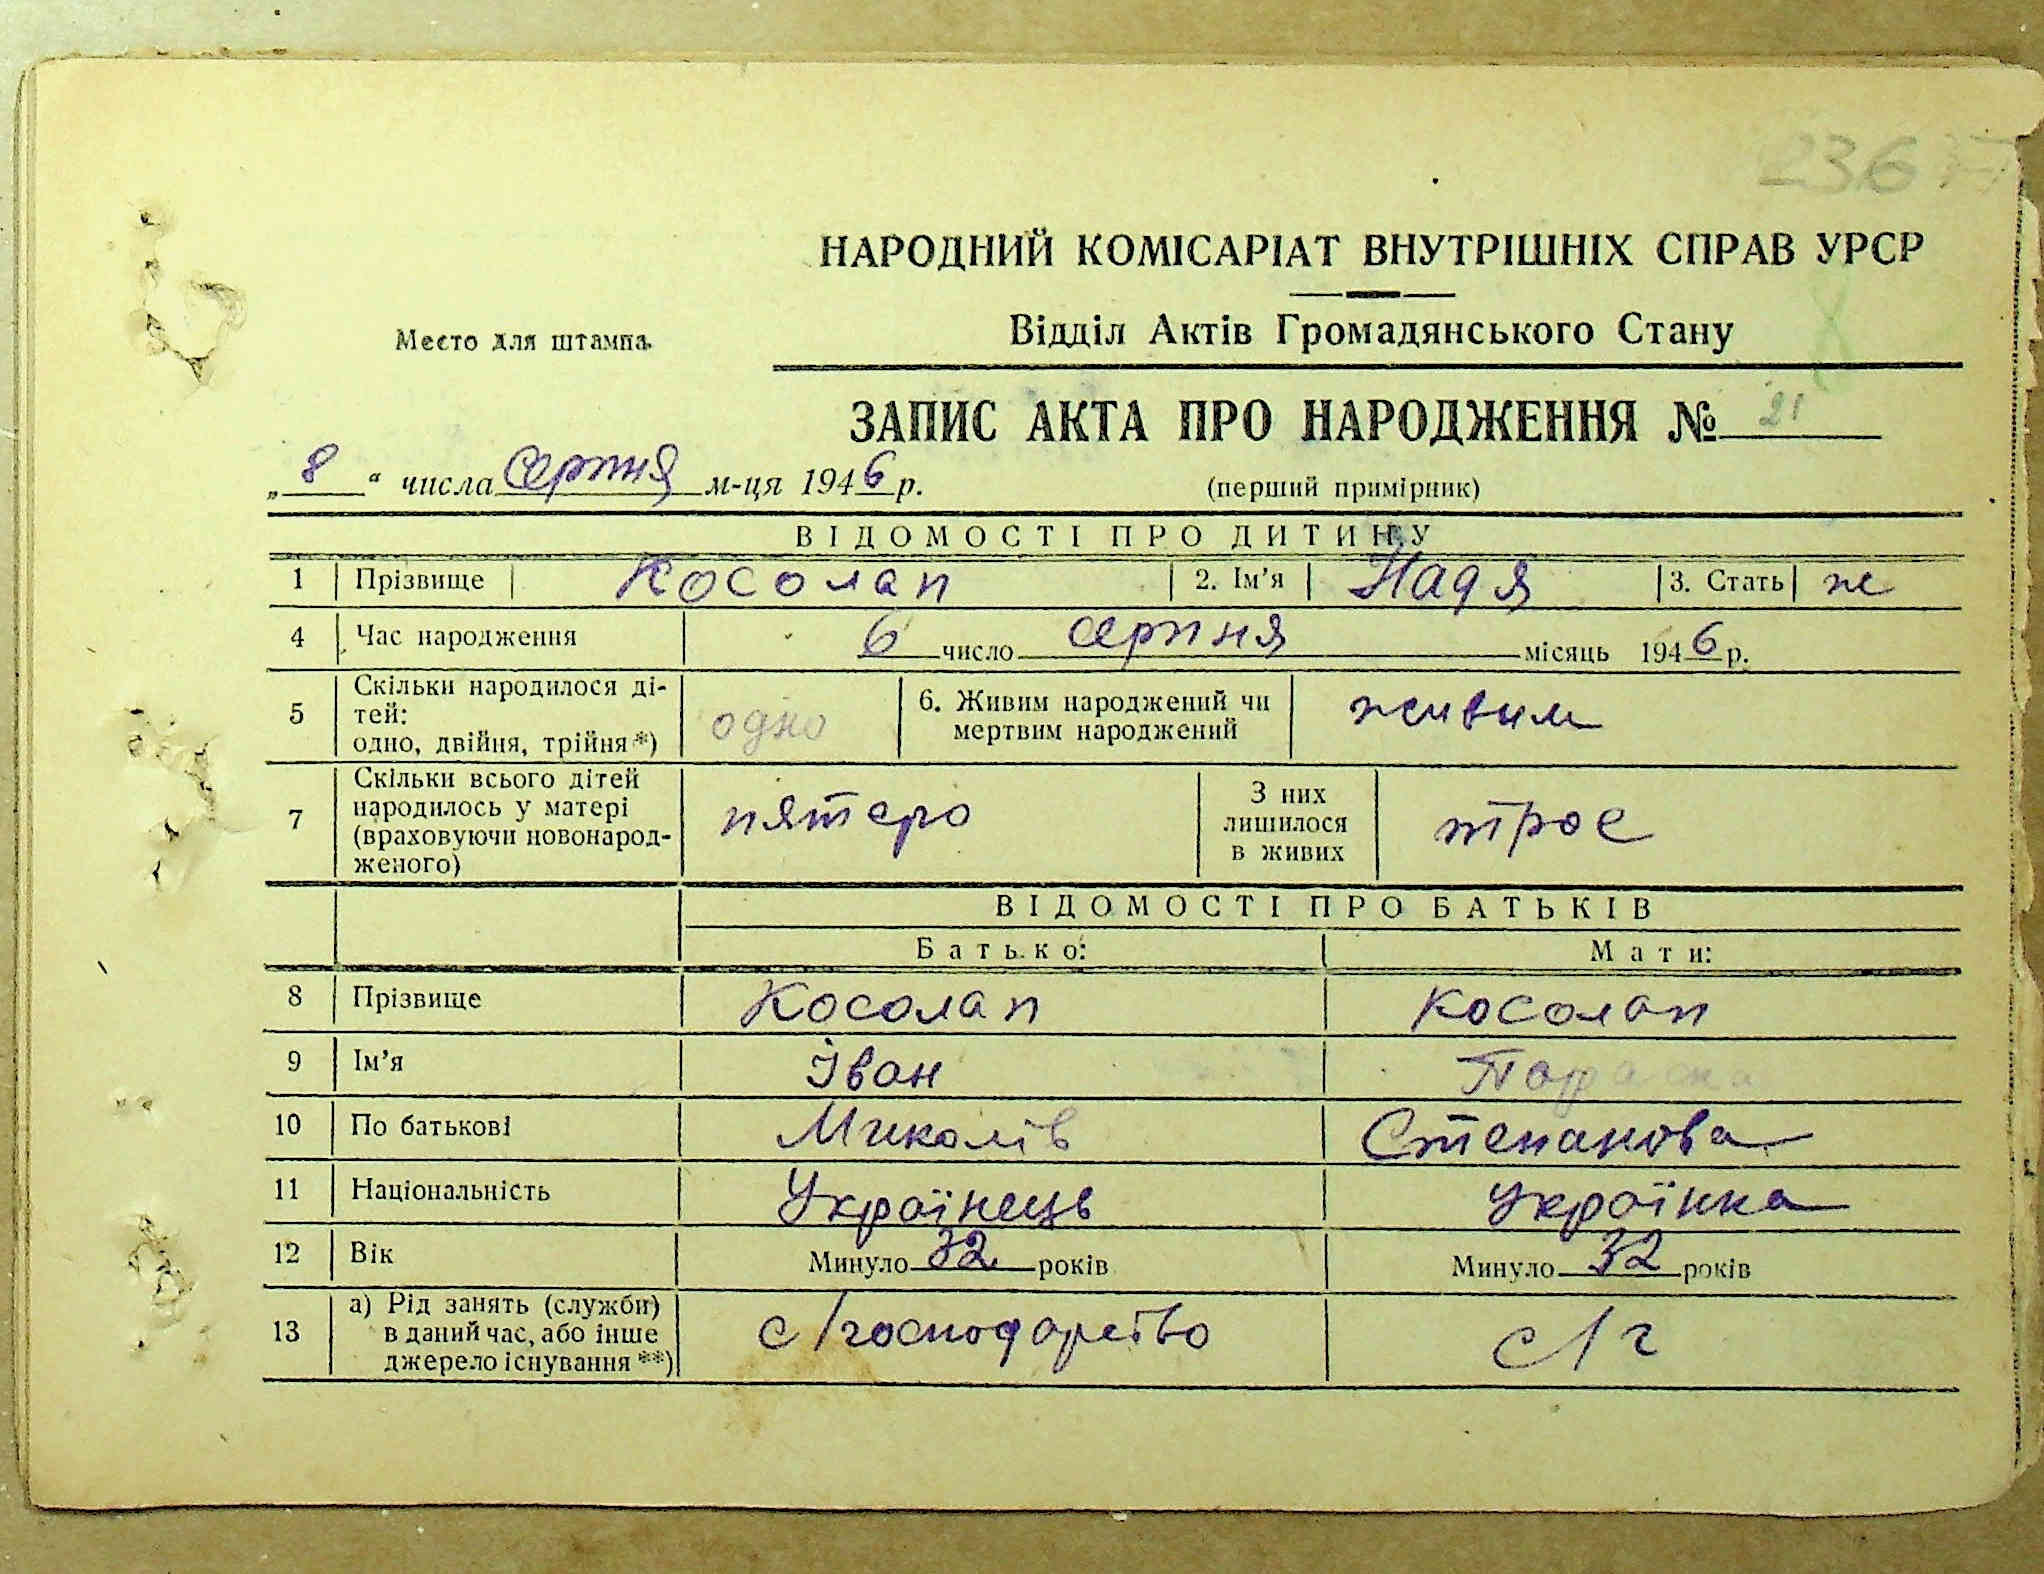 236
НАРОДНИЙ КОМІСАРІАТ ВНУТРІШНІХ СПРАВ УРСР
Відділ Актів Громадянського Стану
Место для штампа.
ЗАПИС АКТА ПРО НАРОДЖЕННЯ № 21
„8“ числа серпня м-ця 1946 р.
(перший примірник)
ВІДОМОСТІ ПРО ДИТИНУ
1 Прізвище Косолап 2. Ім’я Надя 3. Стать ж
4 Час народження 6 число серпня місяць 1946 р.
5 Скільки народилося ді-
тей:
одно, двійня, трійня*) одно 6. Живим народжений чи
мертвим народжений живим
7 Скільки всього дітей
народилось у матері
(враховуючи новонарод-
женого) пятеро З них
лишилося
в живих трое
ВІДОМОСТІ ПРО БАТЬКІВ
Батько: Мати:
8 Прізвище Косолап Косолап
9 Ім’я Іван Параска
10 По батькові Миколів Степанова
11 Національність Українець Українка
12 Вік Минуло 32 років Минуло 32 років
13 а) Рід занять (служби)
в даний час, або інше
джерело існування**) с/господарство с/г